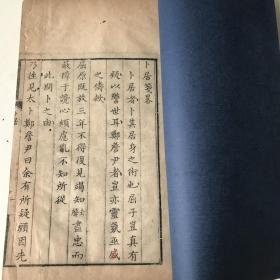 卜居箋畧
卜居者卜其居身之術也屈子豈真有
疑以警世耳鄭詹尹者豈亦靈氛巫咸
之儔歟
屈原既放三年不得復見竭知盡忠而
蔽障于讒心煩慮亂不知所從
此卜之由
乃往見太卜鄭詹尹曰余有所疑願因先